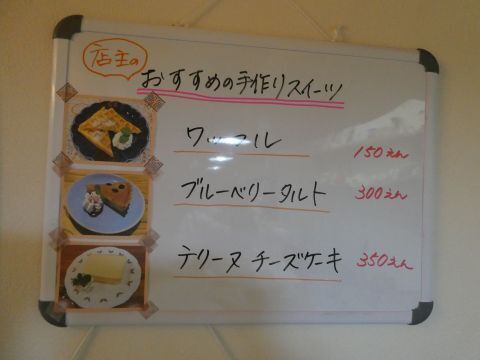 店主の
おすすめの手作りスイーツ
ワッフル 150えん
ブルーベリータルト 300えん
テリーヌ チーズケーキ 350えん